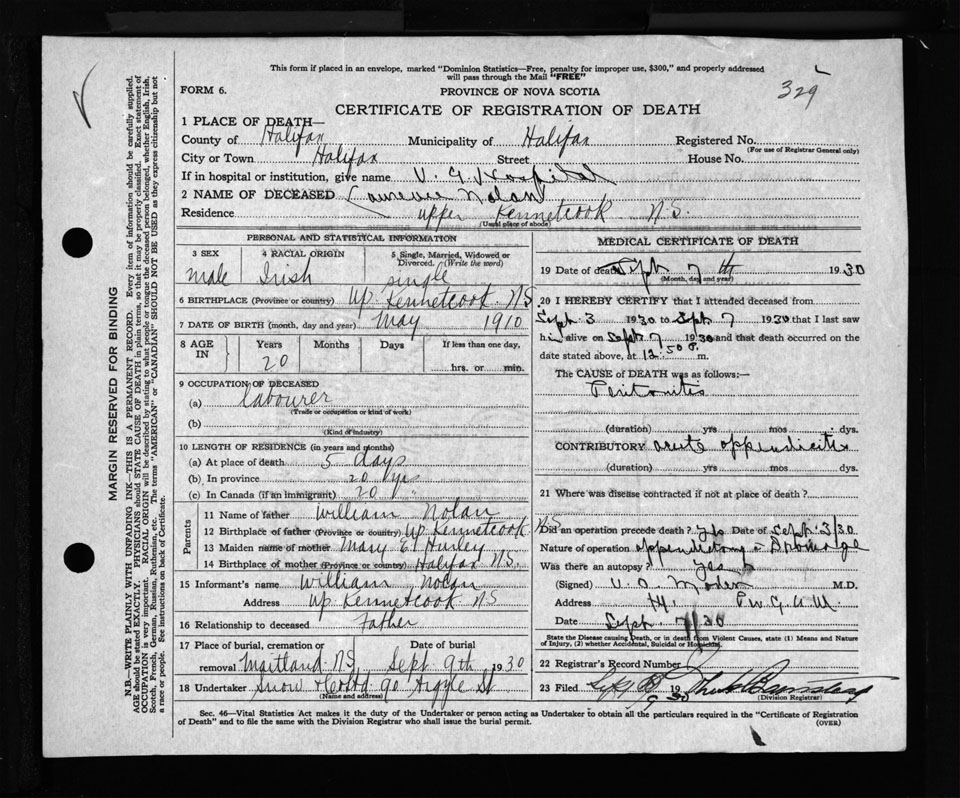 This form if placed in an envelope, marked "Dominion Statistics—Free, penalty for improper use, $300," and properly addressed
will pass through the Mail "FREE"
329
FORM 6.
PROVINCE OF NOVA SCOTIA
CERTIFICATE OF REGISTRATION OF DEATH
1 PLACE OF DEATH—
County of Halifax Municipality of Halifax Registered No.
(For use of Registrar General only)
City or Town Halifax Street House No.
If in hospital or institution, give name V. G. Hospital
2 NAME OF DECEASED Laurence Nolan
Residence upper Kennetcook N.S.
(Usual place of abode)
PERSONAL AND STATISTICAL INFORMATION
3 SEX 4 RACIAL ORIGIN 5 Single, Married, Widowed or Divorced. (Write the word)
male Irish single
6 BIRTHPLACE (Province or country) Up. Kennetcook NS
7 DATE OF BIRTH (month, day and year) May 1910
8 AGE IN Years Months Days If less than one day,
20 hrs. or min.
9 OCCUPATION OF DECEASED
(a) labourer
(Trade or occupation or kind of work)
(b)
(Kind of industry)
10 LENGTH OF RESIDENCE (in years and months)
(a) At place of death 5 days
(b) In province 20 yrs
(c) In Canada (if an immigrant) 20 "
Parents
11 Name of father William Nolan
12 Birthplace of father (Province or country) Up Kennetcook NS
13 Maiden name of mother Mary E. Hurley
14 Birthplace of mother (Province or country) Halifax NS.
15 Informant's name William Nolan
Address Up. Kennetcook NS
16 Relationship to deceased Father
17 Place of burial, cremation or Date of burial
removal Maitland NS. Sept 9th 1930
18 Undertaker Snow & Co Ltd 90 Argyle St
(Name and address)
MEDICAL CERTIFICATE OF DEATH
19 Date of death Sept 7th 1930
(Month, day and year)
20 I HEREBY CERTIFY that I attended deceased from
Sept 3 1930 to Sept 7 1930 that I last saw
him alive on Sept 7 1930 and that death occurred on the
date stated above, at 12.50 P. m.
The CAUSE of DEATH was as follows:—
Peritonitis
(duration) yrs mos dys.
CONTRIBUTORY acute appendicitis
(duration) yrs mos dys.
21 Where was disease contracted if not at place of death?
Did an operation precede death? Yes Date of Sept. 3/30
Nature of operation appendectomy & Drainage
Was there an autopsy? Yes
(Signed) M.D.
Address
Date Sept. 7/30
State the Disease causing Death, or in death from Violent Causes, state (1) Means and Nature
of Injury, (2) whether Accidental, Suicidal or Homicidal.
22 Registrar's Record Number
23 Filed 19 30
(Division Registrar)
Sec. 46—Vital Statistics Act makes it the duty of the Undertaker or person acting as Undertaker to obtain all the particulars required in the "Certificate of Registration
of Death" and to file the same with the Division Registrar who shall issue the burial permit.
(OVER)
MARGIN RESERVED FOR BINDING
N.B.—WRITE PLAINLY WITH UNFADING INK—THIS IS A PERMANENT RECORD. Every item of information should be carefully supplied.
AGE should be stated EXACTLY. PHYSICIANS should STATE CAUSE OF DEATH in plain terms, so that it may be properly classified. Exact statement of
OCCUPATION is very important. RACIAL ORIGIN will be described by stating to what people or tongue the deceased person belonged, whether English, Irish,
Scotch, French, German, Russian, Ruthenian, etc. The terms "AMERICAN" or "CANADIAN" SHOULD NOT BE USED as they express citizenship but not
a race or people. See instructions on back of Certificate.